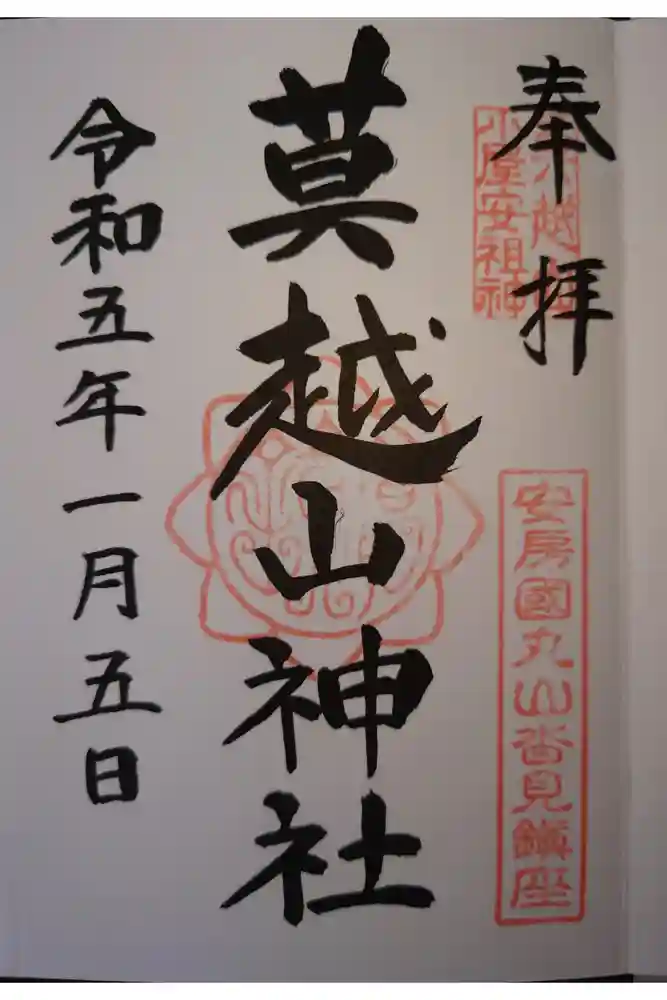 奉拝
小屋安祖神
安房國丸山沓見鎮座
莫越山神社
令和五年一月五日